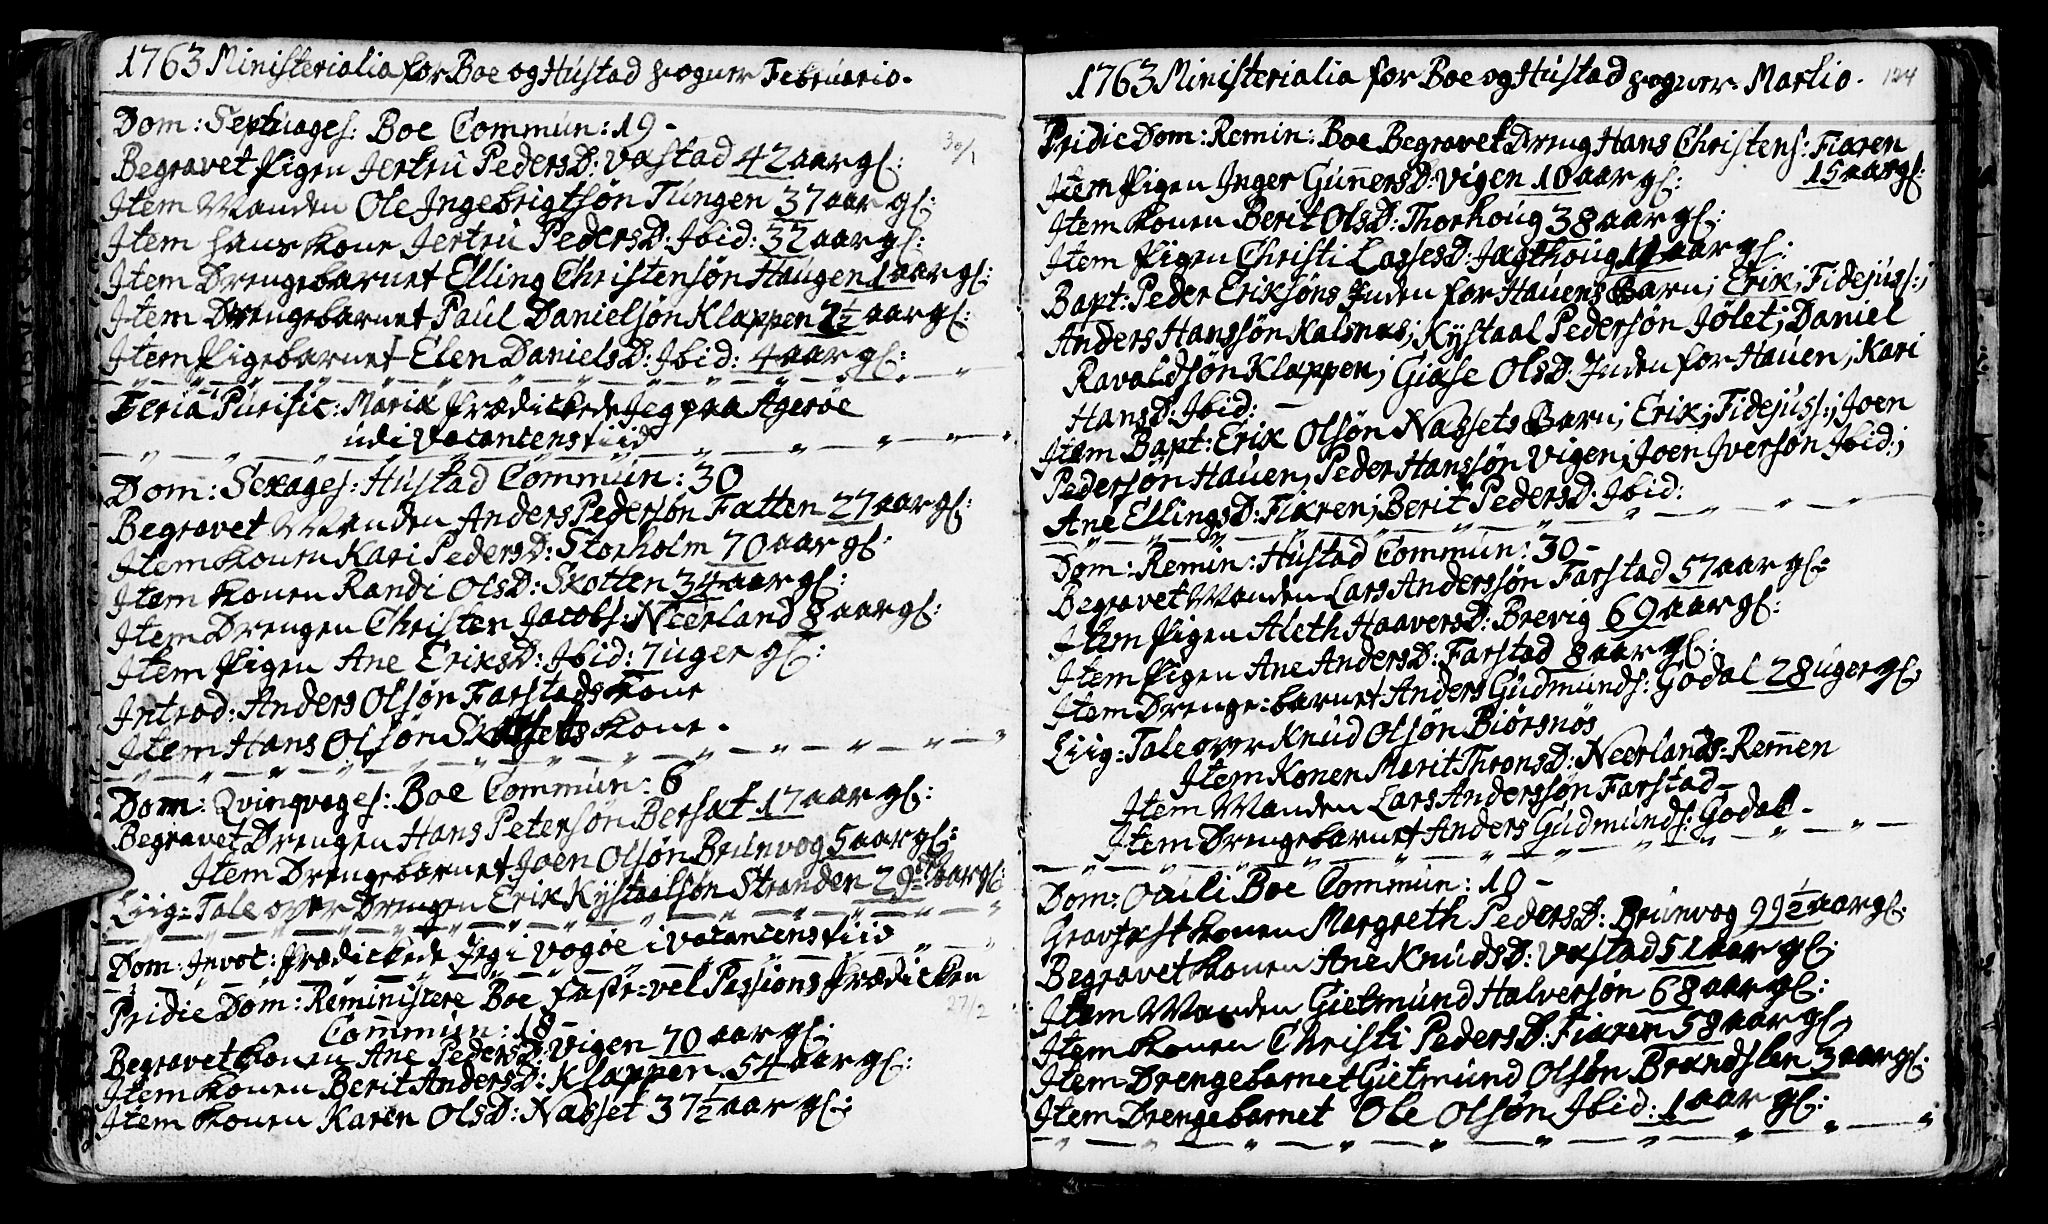 1763 Ministerialia for Boe og Hustad Sogner Februario.
Dom: Septuages: Boe Commun: 19 -
30/1
Begravet Pigen Jertru PedersD: Vastad 42 aar gl:
Item Manden Ole Ingebrigtsøn Tungen 37 aar gl:
Item hans Kone Jertru PedersD: Ibid: 32 aar gl:
Item Drengebarnet Elling Christensøn Haugen 1 aar gl:
Item Drengebarnet Paul Danielsøn Klappen 2½ aar gl:
Item Pigebarnet Elen DanielsD: Ibid: 4 aar gl:
Feria Purific: Mariæ Prædickede Jeg paa Agerøe
udi Vacantens Tiid
Dom: Sexages: Hustad Commun: 30
Begravet Manden Anders Pedersøn Fatten 27 aar gl:
Item Konen Kari PedersD: Storholm 70 aar gl:
Item Konen Randi OlsD: Skotten 34 aar gl:
Item Drengen Christen Jacobs: Neerland 8 aar gl:
Item Pigen Ane EriksD: Ibid: 7 uger gl:
Introd: Anders Olsøn Farstads Kone
Item Hans Olsøn Kone.
Dom: Qvinqvages: Boe Commun: 6
Begravet Drengen Hans Petersøn Bersat 17 aar gl:
Item Drengebarnet Joen Olsøn Brunvog 5 aar gl:
Liig-Tale over Drengen Erik Kystaalsøn Stranden 29 aar gl:
Dom: Invoc: Prædickede Jeg i Vogøe i Vacantens Tiid
Pridie Dom: Reministere Boe Faste-vel Passions Prædicken
27/2
Commun: 18 -
Begravet Konen Ane PedersD: Vigen 70 aar gl:
Item Konen Berit AndersD: Klappen 54 aar gl:
Item Konen Karen OlsD: Nasset 37½ aar gl:
1763 Ministerialia for Boe og Hustad Sogner. Martio.
124
Pridie Dom: Remin: Boe Begravet Dreng Hans Christens: Fiaren
15 aar gl:
Item Pigen Inger GunnersD: Vigen 10 aar gl:
Item Konen Berit OlsD: Thorhoug 38 aar gl:
Item Pigen Christi LassesD: Jagthoug 11 aar gl:
Bapt: Peder Eriksøns Inden for Hauens Barn; Erik; Fidejuss:;
Anders Hanssøn Kalsnes; Kystaal Pedersøn Jølet; Daniel
Ravaldsøn Klappen; Giøse OlsD: Inden for Hauen; Kari
HansD: Ibid: -
Item Bapt: Erik Olsøn Nassets Barn; Erik; Fidejuss:; Joen
Pedersøn Hauen; Peder Hanssøn Vigen; Joen Iversøn Ibid:;
Ane EllingsD: Fiaren; Berit PedersD: Ibid:
Dom: Remin: Hustad Commun: 30 -
Begravet Manden Lars Anderssøn Farstad 57 aar gl:
Item Pigen Aleth HaaversD: Brevig 69 aar gl:
Item Pigen Ane AndersD: Farstad 8 aar gl:
Item Drenge-barnet Anders Gudmunds: Godal 28 uger gl:
Liig-Tale over Knud Olsøn Biørsnøs
Item Konen Marit ThronsD: Neerlands-Remen
Item Manden Lars Anderssøn Farstad -
Item Drengebarnet Anders Gudmunds: Godal -
Dom: Oculi Boe Commun: 19 -
Gravfæst Konen Margreth PedersD: Brunvog 99½ aar gl:
Begravet Konen Ane KnudsD: Vastad 51 aar gl:
Item Manden Gietmund Halversøn 68 aar gl:
Item Konen Christi PedersD: Fiaren 58 aar gl:
Item Drengebarnet Gietmund Olsøn Brandslen 3 aar gl:
Item Drengebarnet Ole Olsøn Ibid: 1 aar gl: